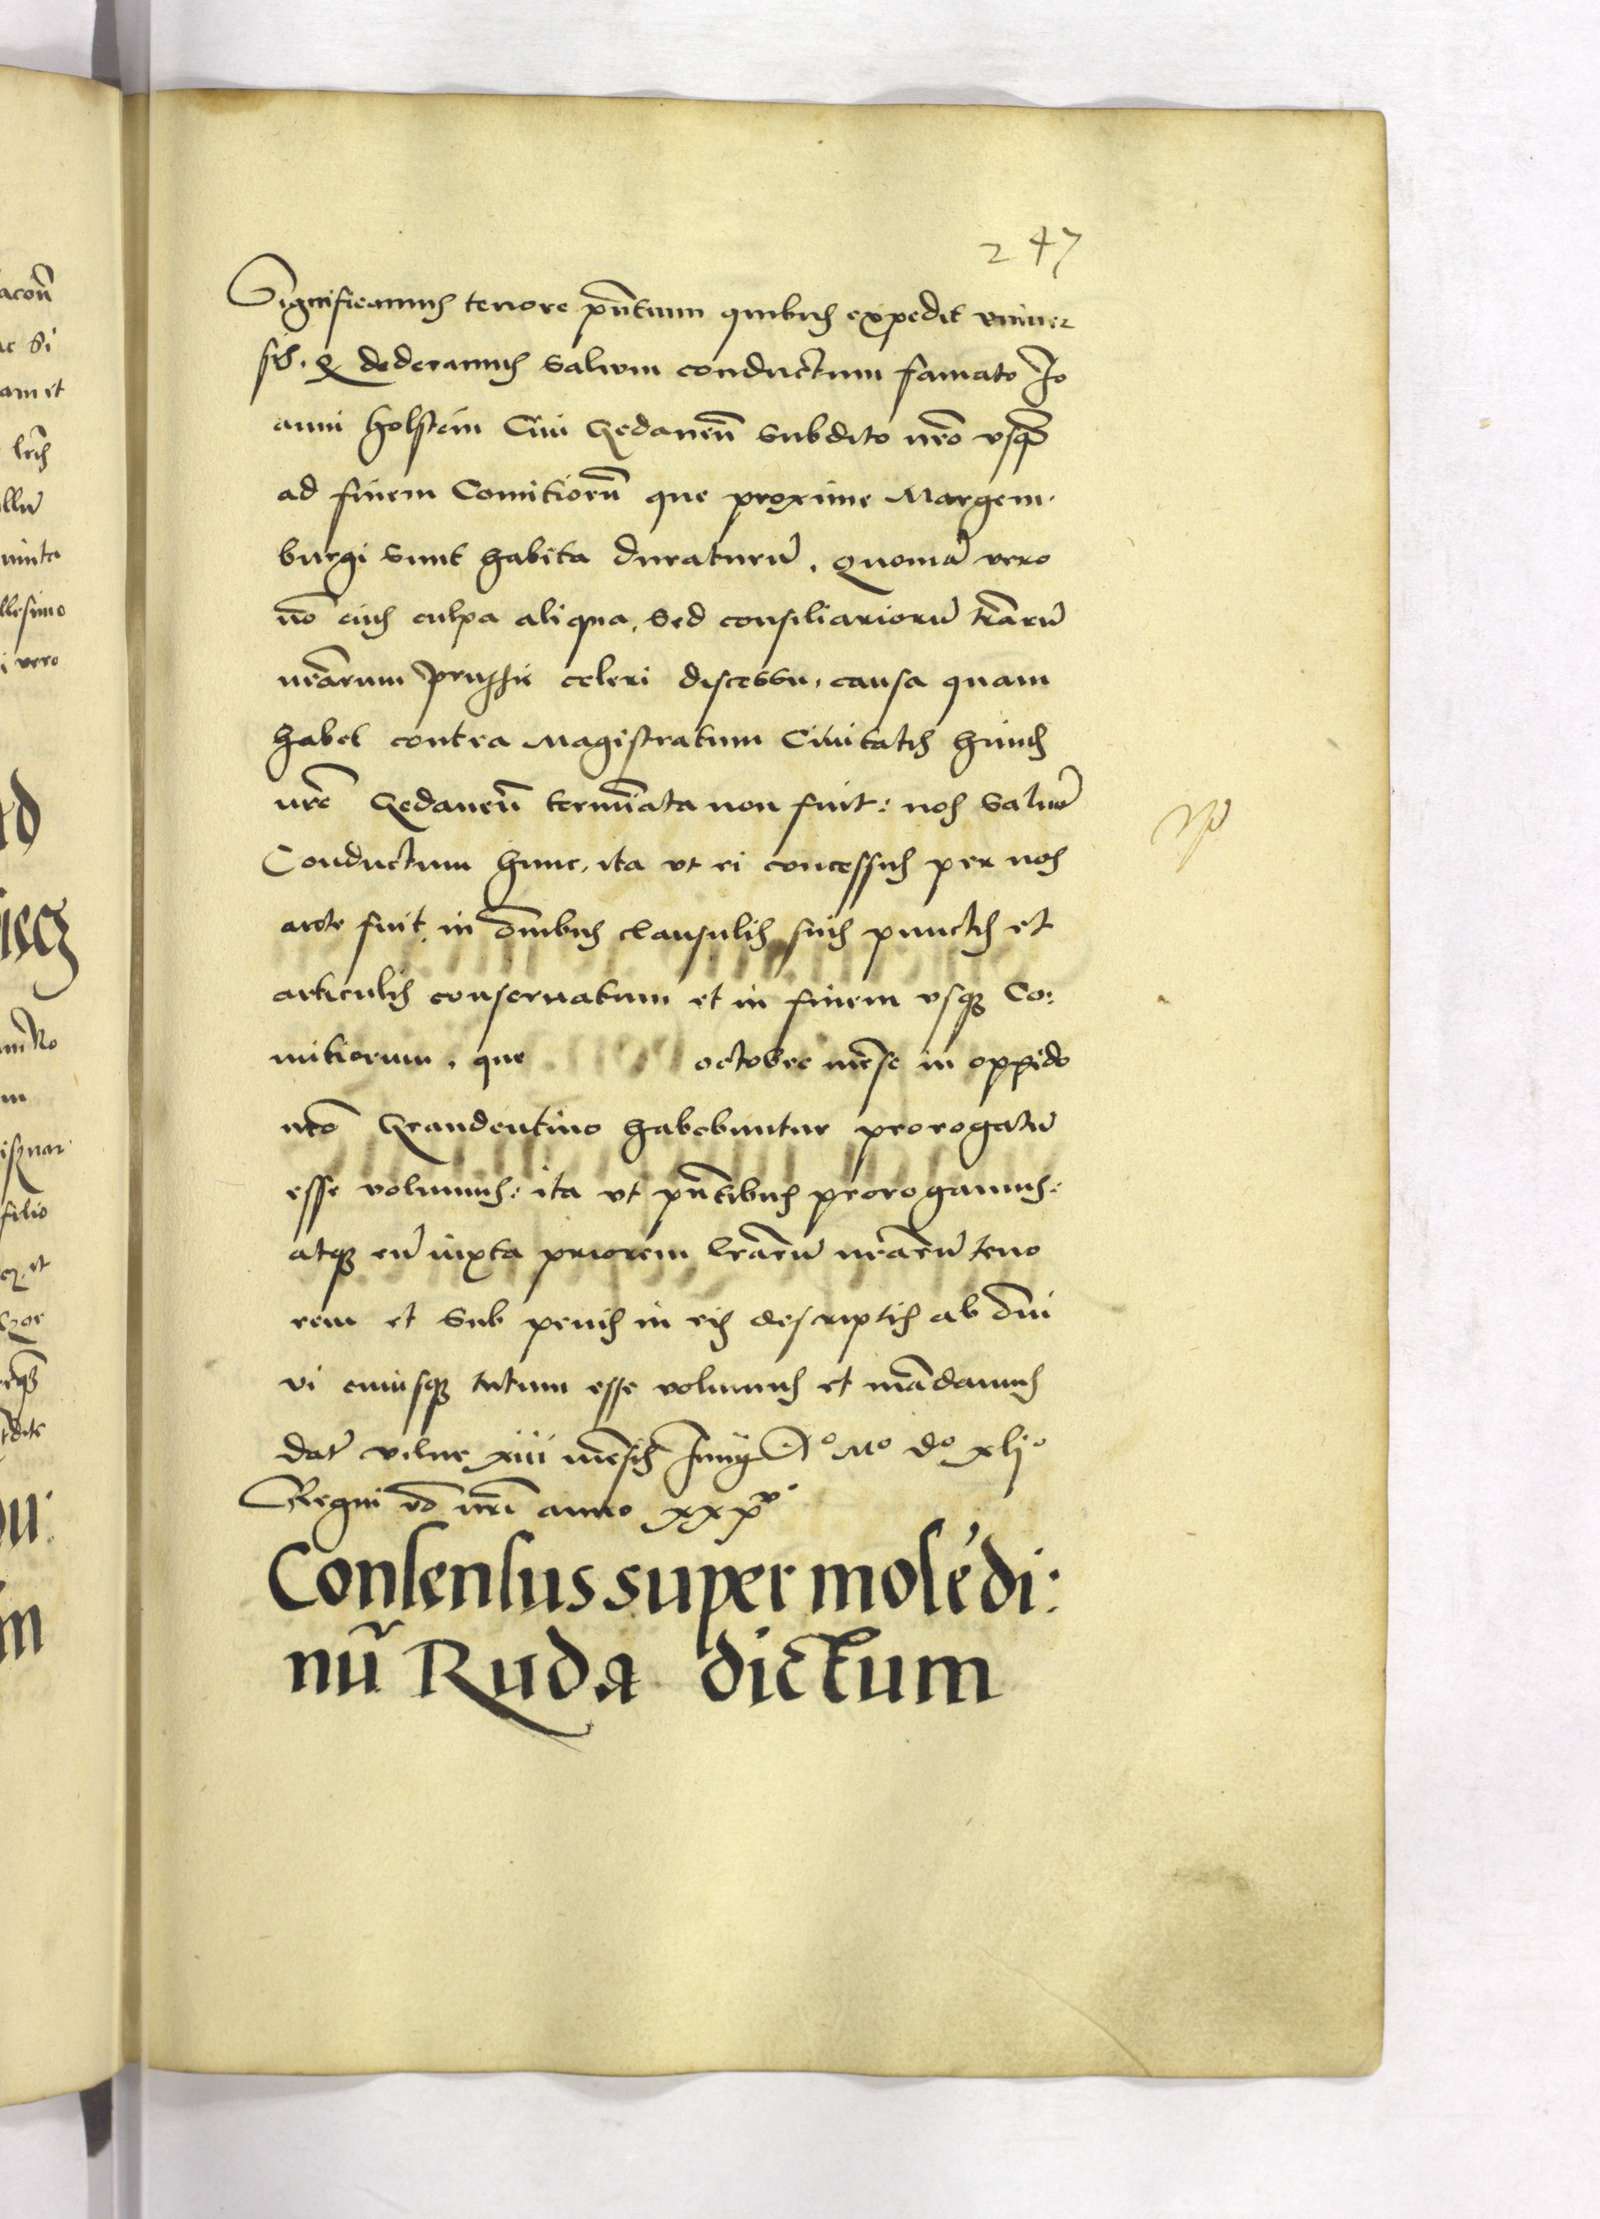 247
Significamus tenore pñtium quibus expedit univer
sis. q̃ dederamus salvum conductum famato Jo
anni Holstein Civi Gedaneñ subdito nrõ usq̃
ad finem Comitiorũ que proxime Margem
burgi sunt habita duraturũ. Quoniã vero
nõ eius culpa aliqua, sed consiliariorũ terrarũ
nrãrum Prussie celeri discessu, causa quam
habet contra Magistratum Civitatis huius
nrẽ Gedaneñ termĩata non fuit: nos salvũ
Conductum hunc, ita ut ei concessus per nos
ante fuit, in õmibus clausulis suis punctis et
articulis conservatum et in finem usq̃ Co:
mitiorum, que octobre mẽse in oppido
nrõ Graudentino habebuntur prorogatũ
esse volumus: ita ut pñtibus prorogamus:
atq̃ eũ iuxta priorem lrãrũ nrãrũ teno
rem et sub penis in eis descriptis ab õmi
vi cuiusq̃ tutum esse volumus et mãdamus
Dat̃ Vilne xiii mẽsis Junij Aº Mº Dº xljº
Regni vº nrĩ anno xxxvº
Consensus super molẽdi:
nũ Ruda dictum